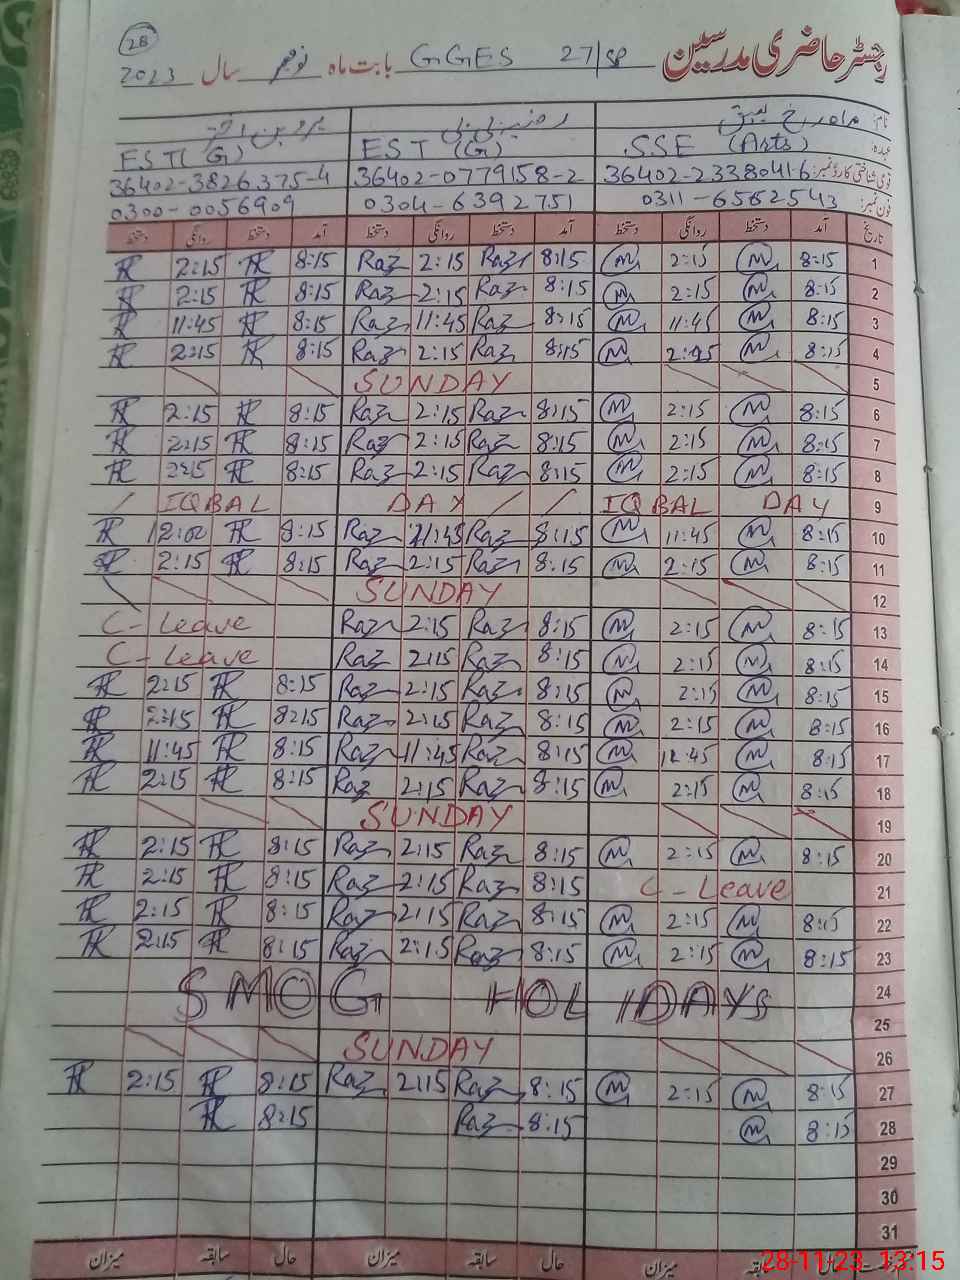 28
رجسٹر حاضری مدرسین GGES 27/SP بابت ماہ نومبر سال 2023
نام:
عہدہ: SSE (Arts) EST (G) EST (G)
قومی شناختی کارڈ نمبر: 36402-2338041-6 36402-0779158-2 36402-3826375-4
فون نمبر: 0311-6562543 0304-6392751 0300-0056909
تاریخ آمد دستخط روانگی دستخط آمد دستخط روانگی دستخط آمد دستخط روانگی دستخط
1 8:15 2:15 8:15 Raz 2:15 Raz 8:15 2:15
2 8:15 2:15 8:15 Raz 2:15 Raz 8:15 2:15
3 8:15 11:45 8:15 Raz 11:45 Raz 8:15 11:45
4 8:15 8:15 Raz 2:15 Raz 8:15 2:15
5 SUNDAY
6 8:15 2:15 8:15 Raz 2:15 Raz 8:15 2:15
7 8:15 2:15 8:15 Raz 2:15 Raz 8:15 2:15
8 8:15 2:15 8:15 Raz 2:15 Raz 8:15 2:15
9 IQBAL DAY IQBAL DAY
10 8:15 11:45 8:15 Raz 11:45 Raz 8:15 12:00
11 8:15 2:15 8:15 Raz 2:15 Raz 8:15 2:15
12 SUNDAY
13 8:15 2:15 8:15 Raz 2:15 Raz C-Leave
14 8:15 2:15 8:15 Raz 2:15 Raz C-Leave
15 8:15 2:15 8:15 Raz 2:15 Raz 8:15 2:15
16 8:15 2:15 8:15 Raz 2:15 Raz 8:15 2:15
17 8:15 8:15 Raz 11:45 Raz 8:15 11:45
18 8:15 2:15 8:15 Raz 2:15 Raz 8:15 2:15
19 SUNDAY
20 8:15 2:15 8:15 Raz 2:15 Raz 8:15 2:15
21 C-Leave 8:15 Raz 2:15 Raz 8:15 2:15
22 8:15 2:15 8:15 Raz 2:15 Raz 8:15 2:15
23 8:15 2:15 8:15 Raz 2:15 Raz 8:15 2:15
24 SMOG HOLIDAYS
25
26 SUNDAY
27 8:15 2:15 8:15 Raz 2:15 Raz 8:15 2:15
28 8:15 8:15 Raz 8:15
29
30
31
حال سابقہ میزان حال سابقہ میزان حال سابقہ میزان
28-11-23 13:15